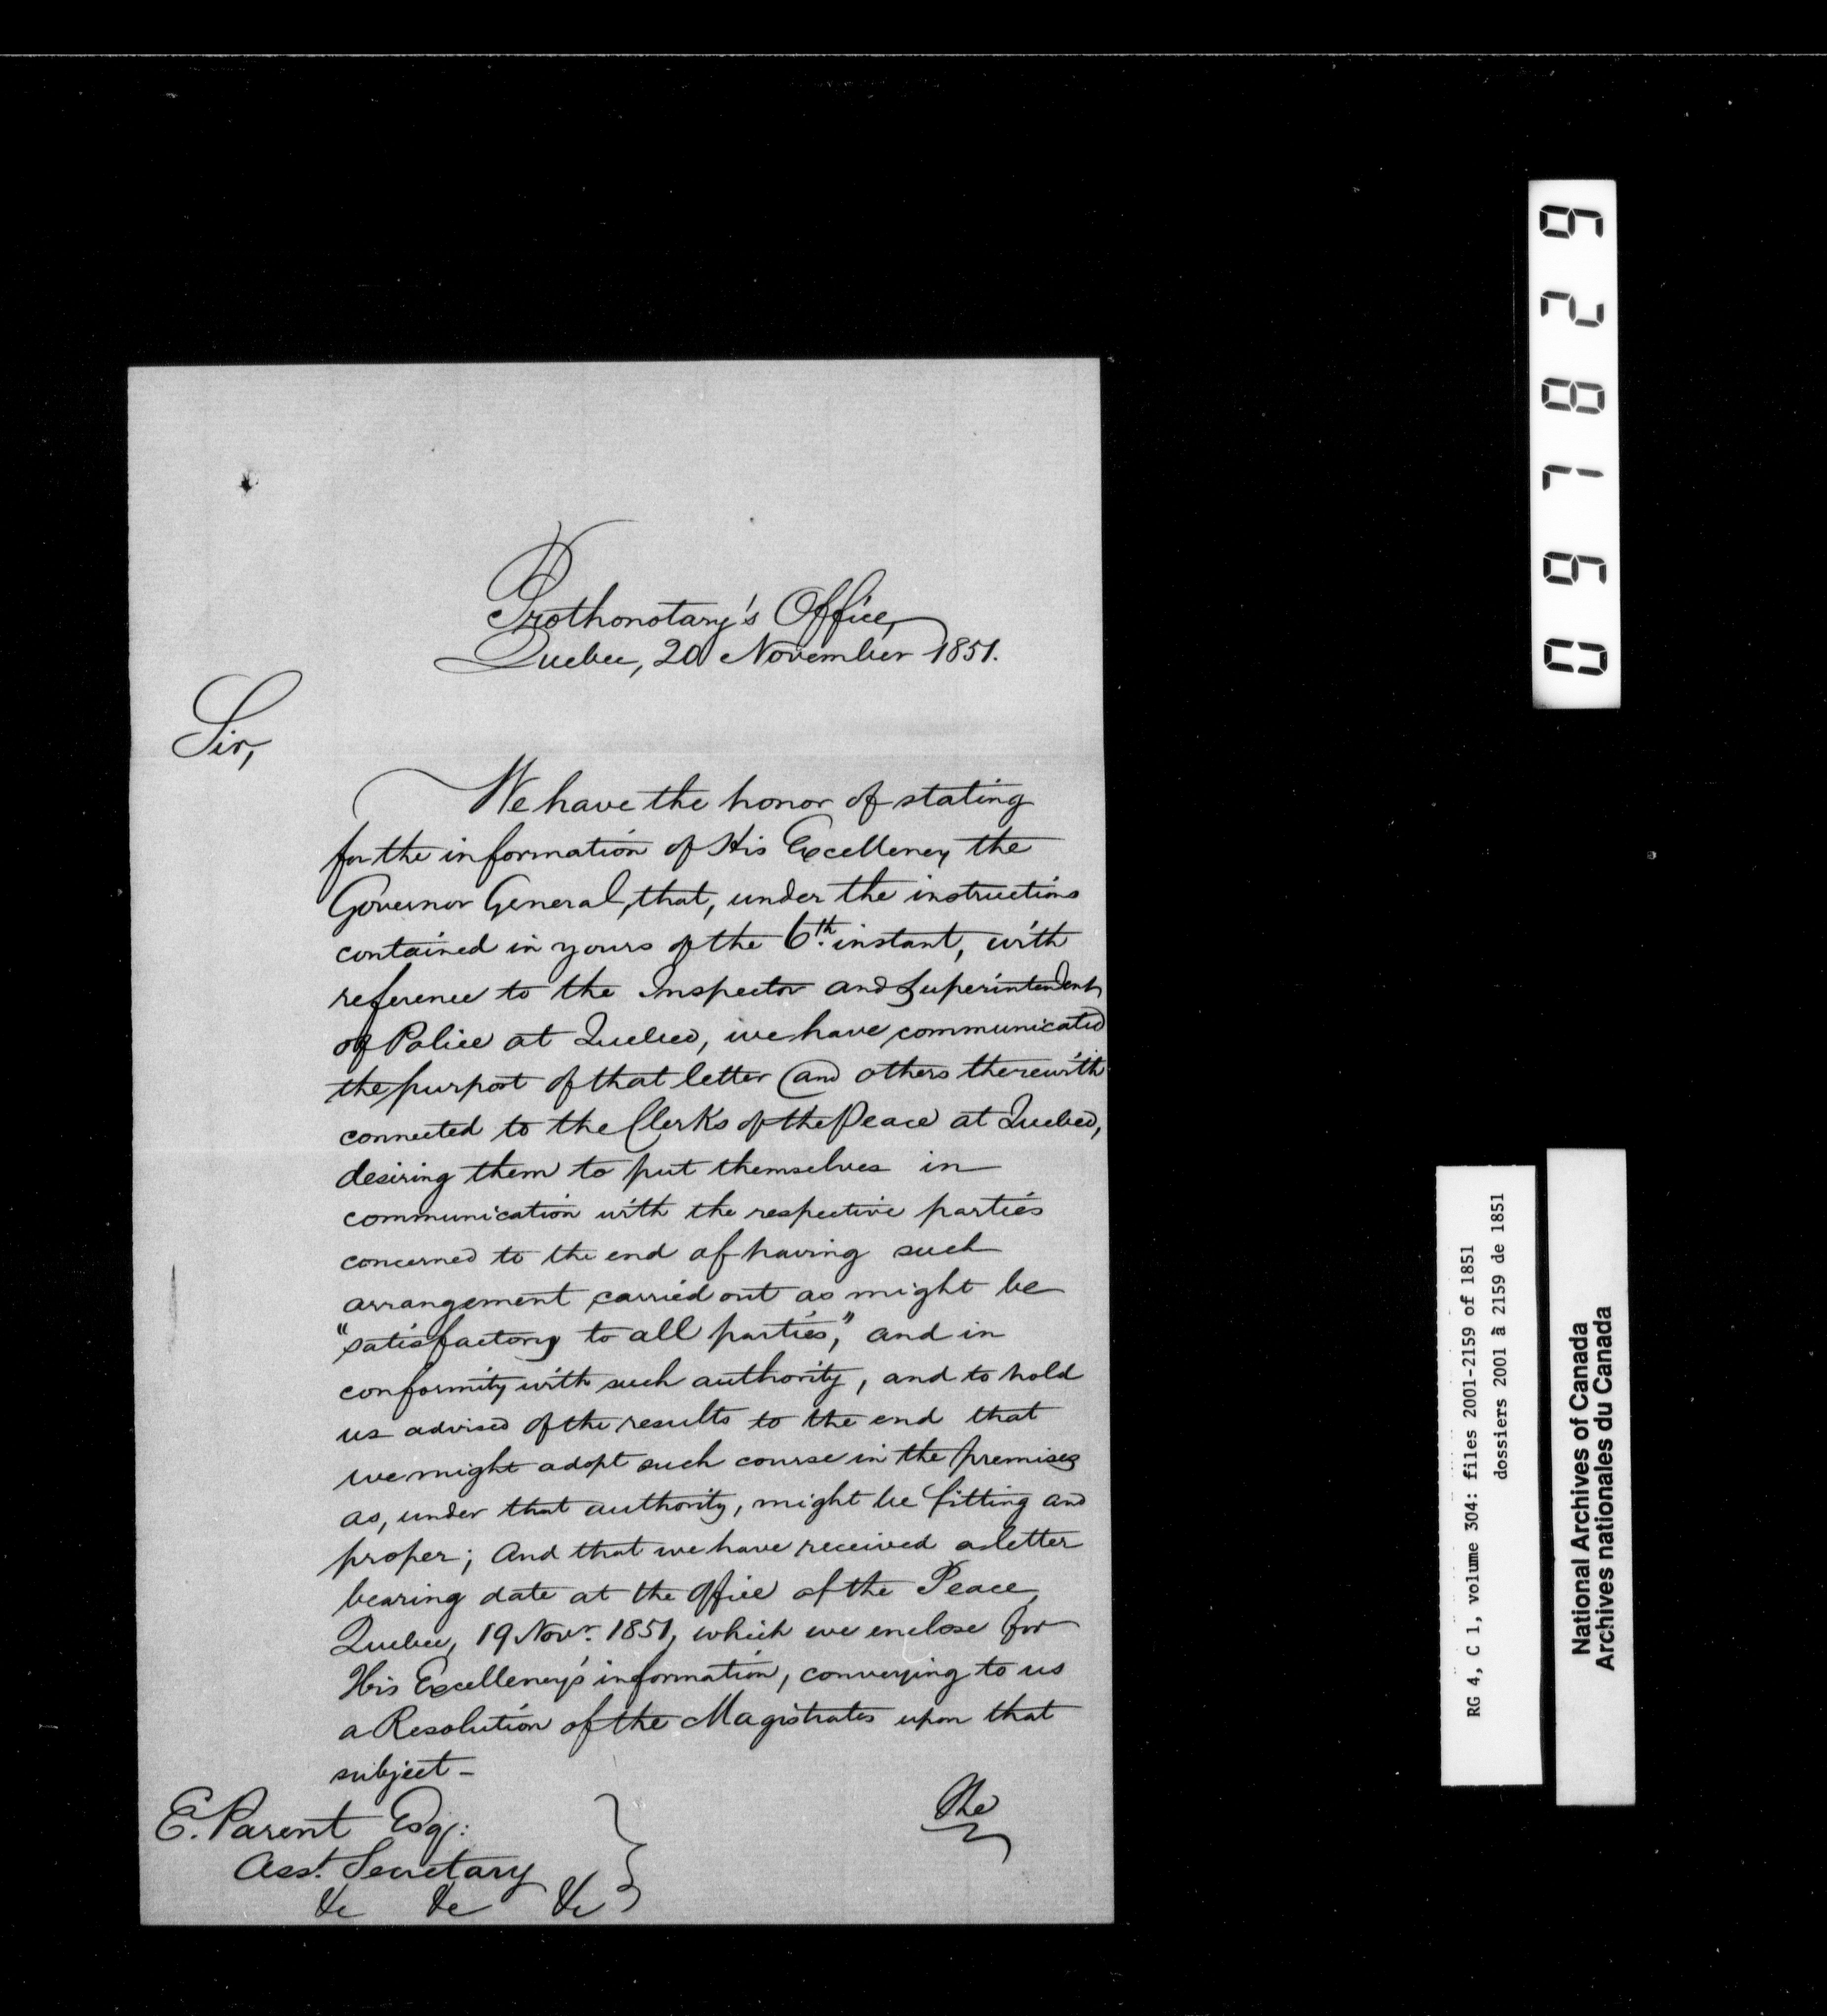 Prothonotary's Office,
Quebec, 20 November 1851.
Sir,
We have the honor of stating
for the information of His Excellency the
Governor General, that, under the instructions
contained in yours of the 6th. instant, with
reference to the Inspector and Superintendent
of Police at Quebec, we have communicated
the purport of that letter (and others therewith
connected to the Clerks of the Peace at Quebec,
desiring them to put themselves in
communication with the respective parties
concerned to the end of having such
arrangement carried out as might be
"satisfactory to all parties," and in
conformity with such authority, and to hold
us advised of the results to the end that
we might adopt such course in the premises
as, under that authority, might be fitting and
proper; And that we have received a letter
bearing date at the Office of the Peace,
Quebec, 19 Novr. 1851, which we enclose for
His Excellency's information, conveying to us
a Resolution of the Magistrates upon that
subject –
The
E. Parent Esq:
Asst. Secretary
&c &c &c
067829
RG 4, C 1, volume 304: files 2001-2159 of 1851
dossiers 2001 à 2159 de 1851
National Archives of Canada
Archives nationales du Canada